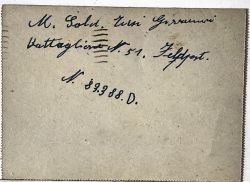 M. Sold. Tusi Giovanni
Battaglione N. 51. Feldpost.
N. 89988. D.